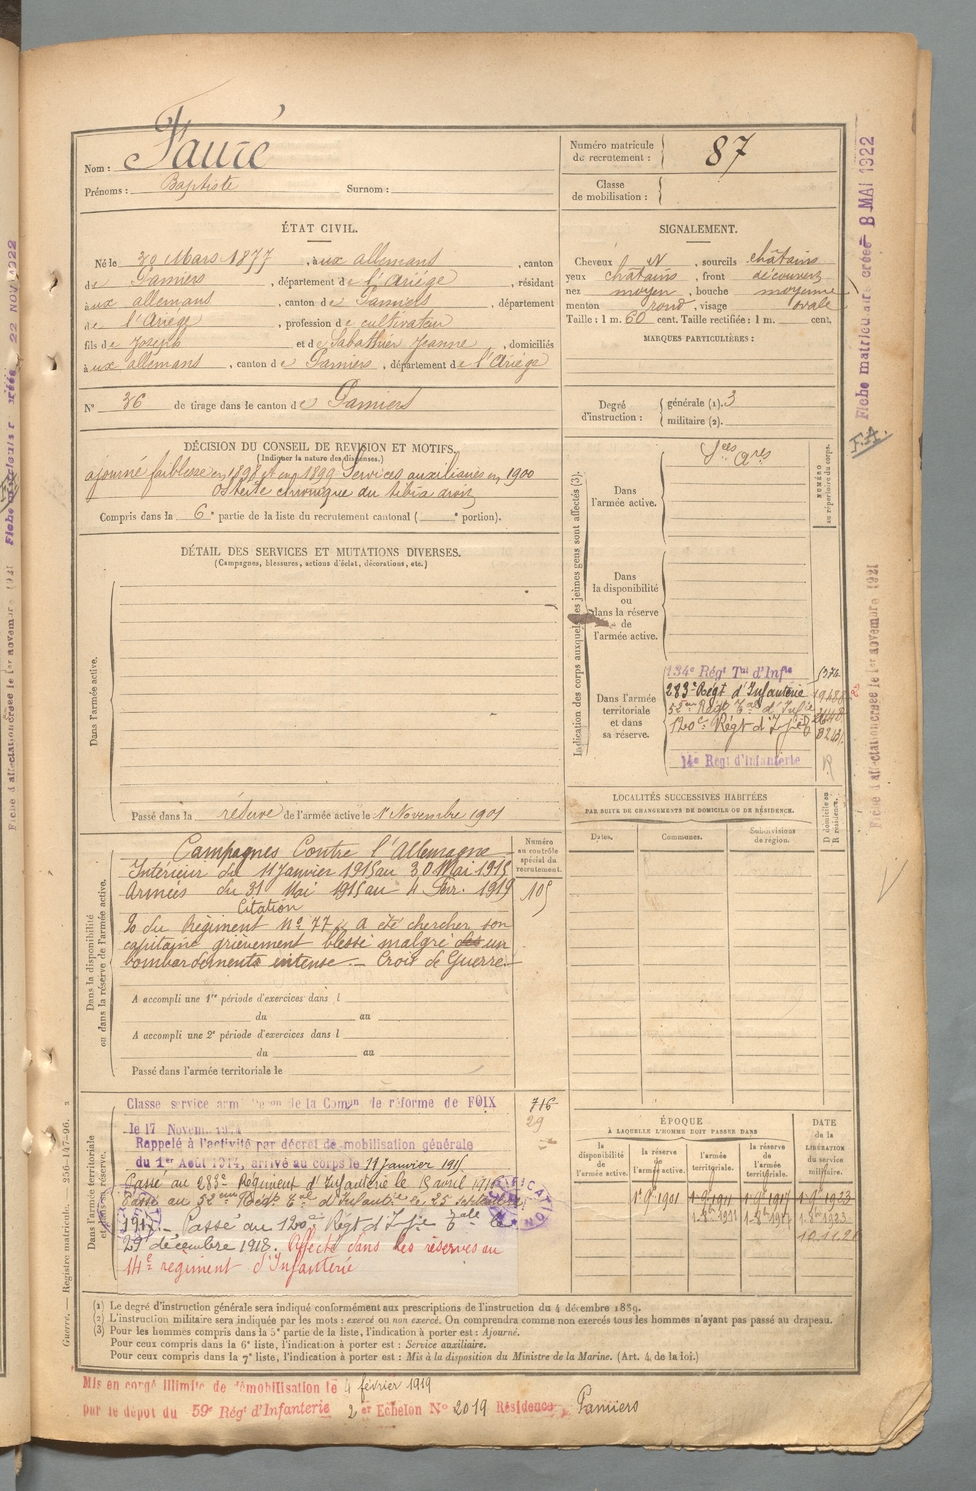 Nom : Fauré
Prénoms : Baptiste Surnom :
Numéro matricule de recrutement : 87
Classe de mobilisation :
ÉTAT CIVIL.
Né le 30 Mars 1877, à aux allemans, canton
de Pamiers, département de l'Ariége, résidant
à aux allemans, canton de Pamiers, département
de l'Ariége, profession de cultivateur
fils de Joseph et de Sabathier Jeanne, domiciliés
à aux allemans, canton de Pamiers, département de l'Ariége
N° 36 de tirage dans le canton de Pamiers
SIGNALEMENT.
Cheveux N, sourcils châtains
yeux châtains, front découvert
nez moyen, bouche moyenne
menton rond, visage ovale
Taille : 1 m. 60 cent. Taille rectifiée : 1 m. cent.
MARQUES PARTICULIÈRES :
Degré d'instruction : générale (1). 3
militaire (2).
DÉCISION DU CONSEIL DE REVISION ET MOTIFS.
(Indiquer la nature des dispenses.)
ajourné faiblesse en 1898 et en 1899 Services auxiliaires en 1900
Ostéite chronique du tibia droit
Compris dans la 6e partie de la liste du recrutement cantonal ( e portion).
DÉTAIL DES SERVICES ET MUTATIONS DIVERSES.
(Campagnes, blessures, actions d'éclat, décorations, etc.)
Dans l'armée active.
Passé dans la réserve de l'armée active le 1er Novembre 1901
Indication des corps auxquels les jeunes gens sont affectés (3).
NUMÉRO au répertoire du corps.
Dans l'armée active.
Dans la disponibilité ou dans la réserve de l'armée active.
Dans l'armée territoriale et dans sa réserve.
134e Régt Tal d'Infie
283e Régt d'Infanterie
52eme Régt Tal d'Infie
120e Régt d'Infie
14e Régt d'Infanterie
LOCALITÉS SUCCESSIVES HABITÉES
PAR SUITE DE CHANGEMENTS DE DOMICILE OU DE RÉSIDENCE.
Dates. Communes. Subdivisions de région. D domicile ou R résidence.
Dans la disponibilité ou dans la réserve de l'armée active.
Numéro au contrôle spécial du recrutement.
105
Campagnes Contre l'Allemagne
Intérieur du 11 Janvier 1915 au 30 Mai 1915
Armées du 31 Mai 1915 au 4 Fevr. 1919
Citation
O du Régiment N° 77 « A été chercher son
capitaine grièvement blessé malgré un
bombardements intense. — Croix de Guerre.
A accompli une 1re période d'exercices dans l
du au
A accompli une 2e période d'exercices dans l
du au
Passé dans l'armée territoriale le
Dans l'armée territoriale et dans sa réserve.
716
29
Classe service armé de la Comon de réforme de FOIX
le 17 Novemb
Rappelé à l'activité par décret de mobilisation générale
du 1er Août 1914, arrivé au corps le 11 Janvier 1915
Passé au 283e Régiment d'Infanterie le 18 avril 1915
Passé au 52eme Régt Tal d'Infantie le 25 septembre
1917. — Passé au 120e Régt d'Infie Tale le
29 décembre 1918. Affecté dans les réserves au
14e regiment d'Infanterie
ÉPOQUE
À LAQUELLE L'HOMME DOIT PASSER DANS
la disponibilité de l'armée active.
la réserve de l'armée active.
l'armée territoriale.
la réserve de l'armée territoriale.
DATE de la LIBÉRATION du service militaire.
(1) Le degré d'instruction générale sera indiqué conformément aux prescriptions de l'instruction du 4 décembre 1889.
(2) L'instruction militaire sera indiquée par les mots : exercé ou non exercé. On comprendra comme non exercés tous les hommes n'ayant pas passé au drapeau.
(3) Pour les hommes compris dans la 5e partie de la liste, l'indication à porter est : Ajourné.
Pour ceux compris dans la 6e liste, l'indication à porter est : Service auxiliaire.
Pour ceux compris dans la 7e liste, l'indication à porter est : Mis à la disposition du Ministre de la Marine. (Art. 4 de la loi.)
Mis en congé illimité de démobilisation le 4 février 1919
par le dépôt du 59e Régt d'Infanterie 2er Echelon N° 2019 Résidence Pamiers
Guerre. — Registre matricule. — 256-147-96.
Fiche matricul créée 8 MAI 1922
F.A.
Fiche d'affectation créée le 1er novembre 1921